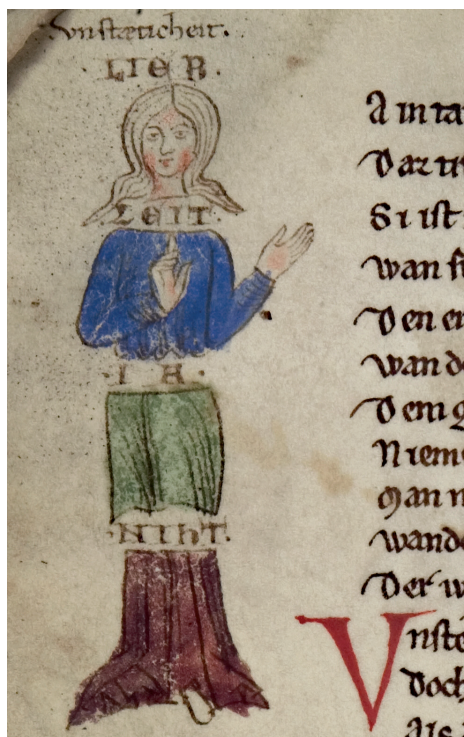 vnstæticheit.
·LIEB.
LEIT
·I A·
·NIHT·
A in
Dar
Si ist
wan
Den
wan
Dem
Niem
man
wand
Der
Vnste
doch
Als